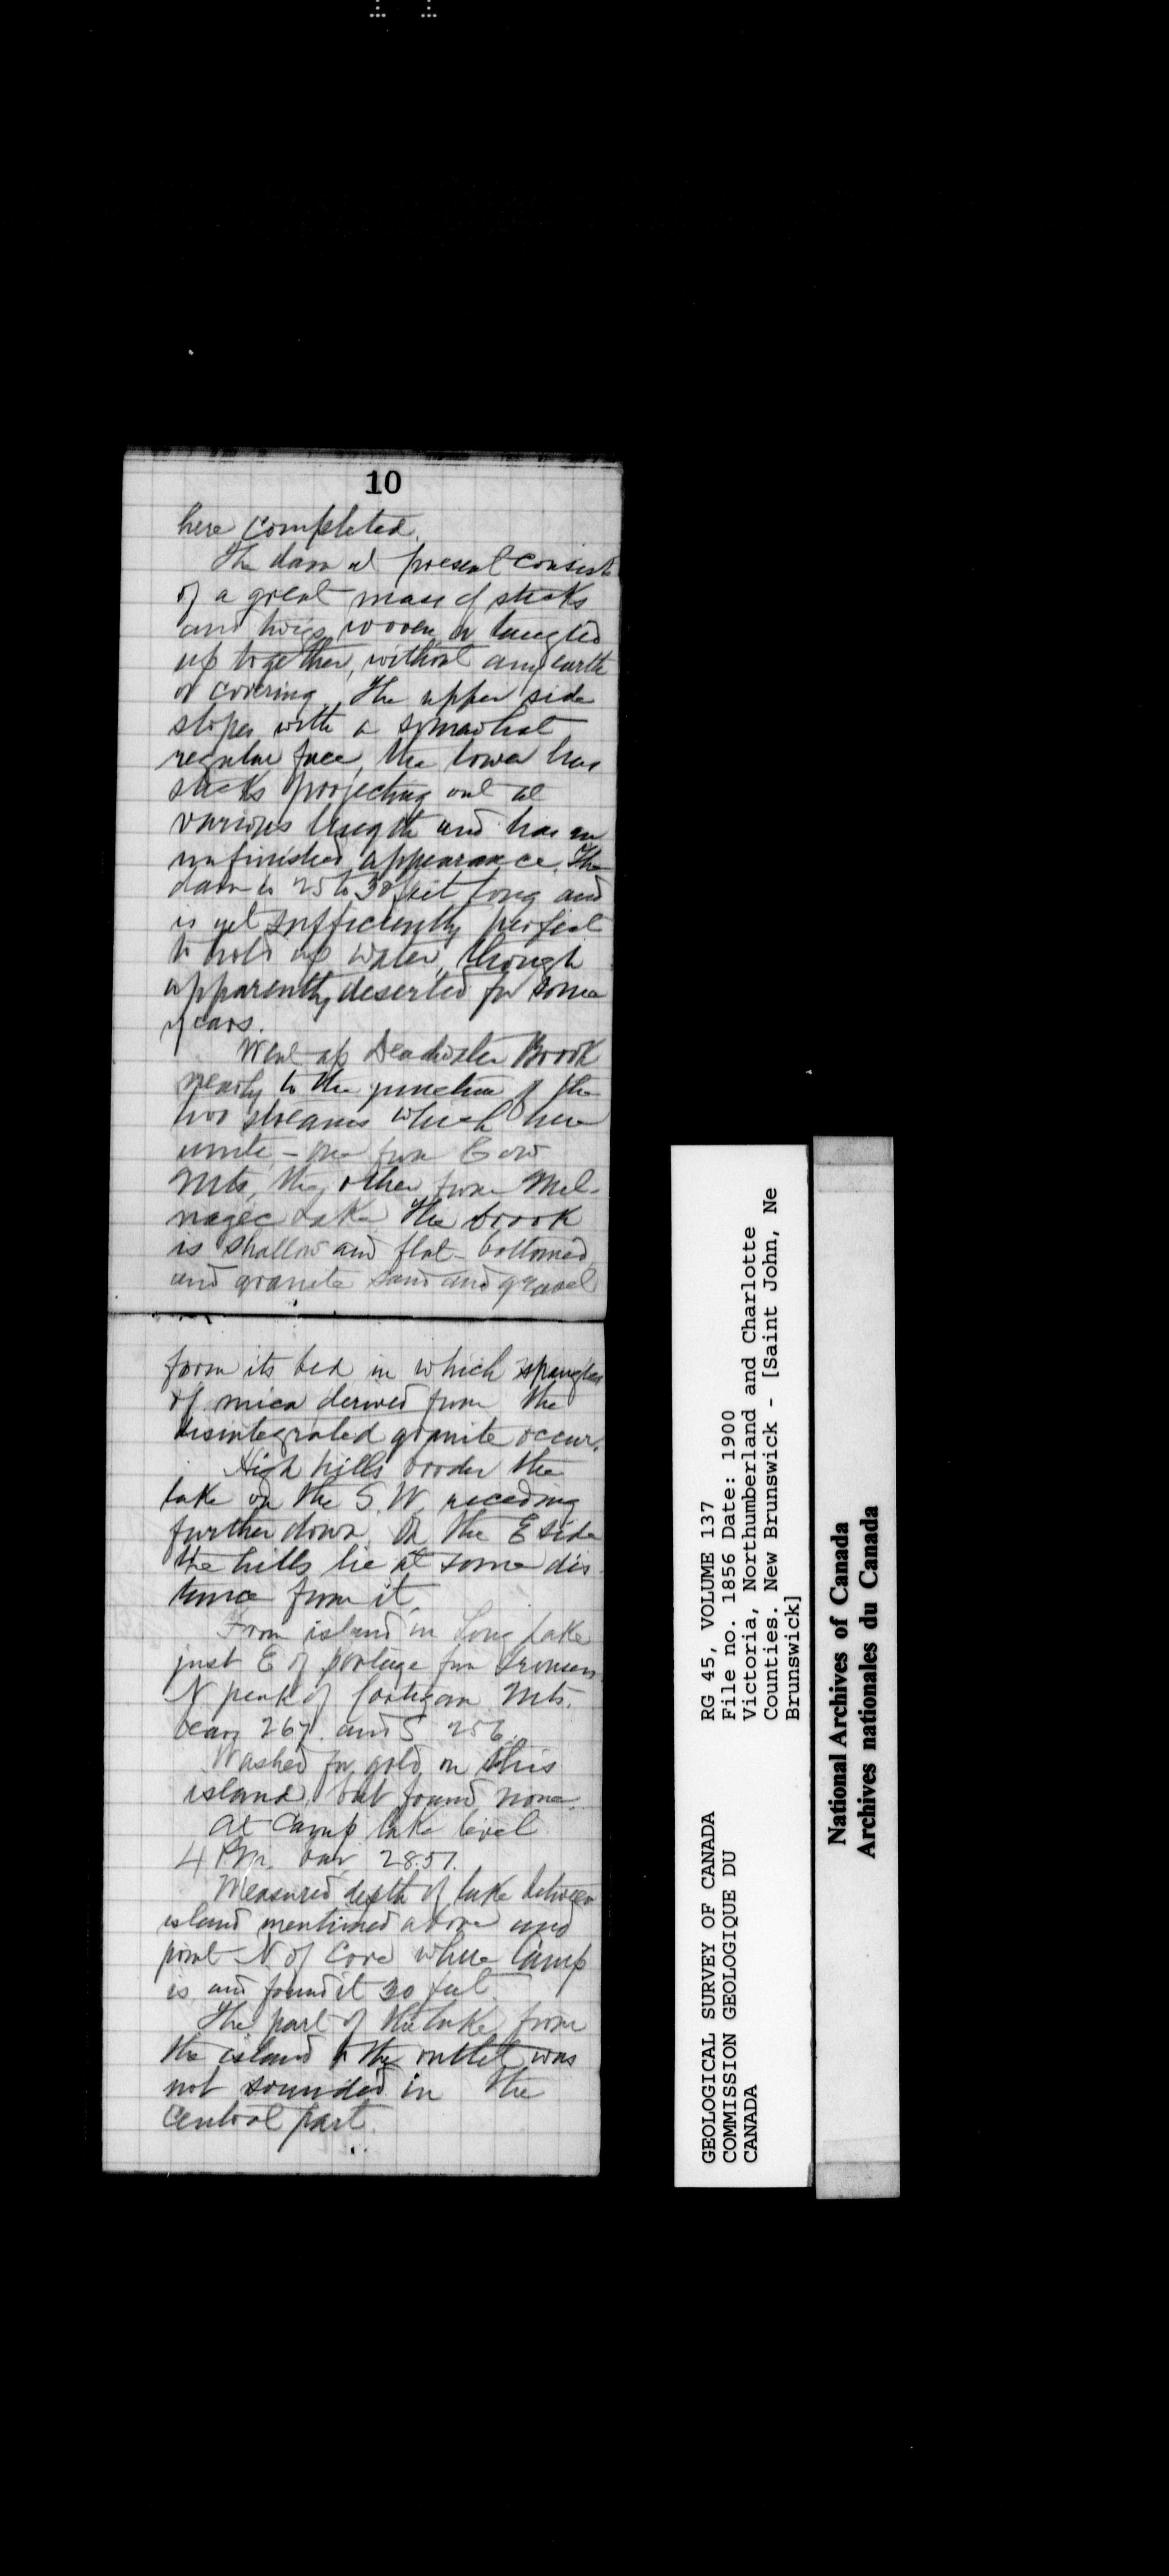 10
here completed.
The dam at present consists
of a great mass of sticks
and twigs woven or tangled
up together, without any earth
or covering. The upper side
slopes with a somewhat
regular face, the lower has
sticks projecting out at
various length and has an
unfinished appearance. The
dam is 25 to 30 feet long and
is yet sufficiently perfect
to hold up water, though
apparently deserted for some
years.
Went up Deadwater Brook
nearly to the junction of the
two streams which here
unite, - one from Cow
Mts, the other from Mal-
nagec Lake. The brook
is shallow and flat-bottomed
and granite sand and gravel
form its bed in which spangles
of mica derived from the
disintegrated granite occur.
High hills border the
lake on the S.W. receding
further down. On the E side
the hills lie at some dis-
tance from it.
From island in Long Lake
just E of portage from
N peak of Costigan Mts.
bear 267. and S 256.
Washed for gold on this
island, but found none.
At Camp lake level
4 P.M. bar. 28.57.
Measured depth of lake between
island mentioned above and
point N of Cove where Camp
is and found it 30 feet.
The part of the lake from
the island to the outlet was
not sounded in the
central part.
GEOLOGICAL SURVEY OF CANADA
COMMISSION GEOLOGIQUE DU
CANADA
RG 45, VOLUME 137
File no. 1856 Date: 1900
Victoria, Northumberland and Charlotte
Counties. New Brunswick - [Saint John, Ne
Brunswick]
National Archives of Canada
Archives nationales du Canada